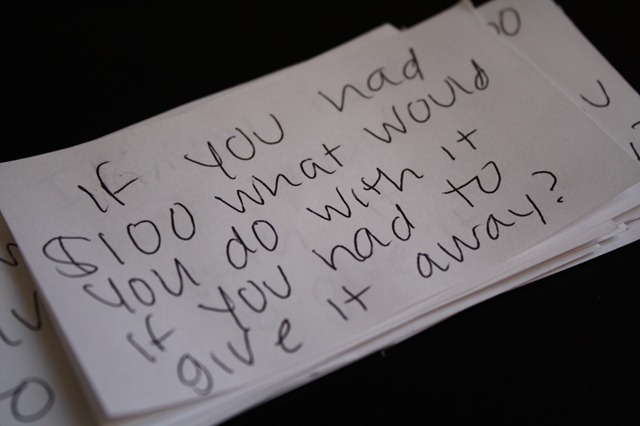 If you had
$100 what would
you do with it
if you had to
give it away?